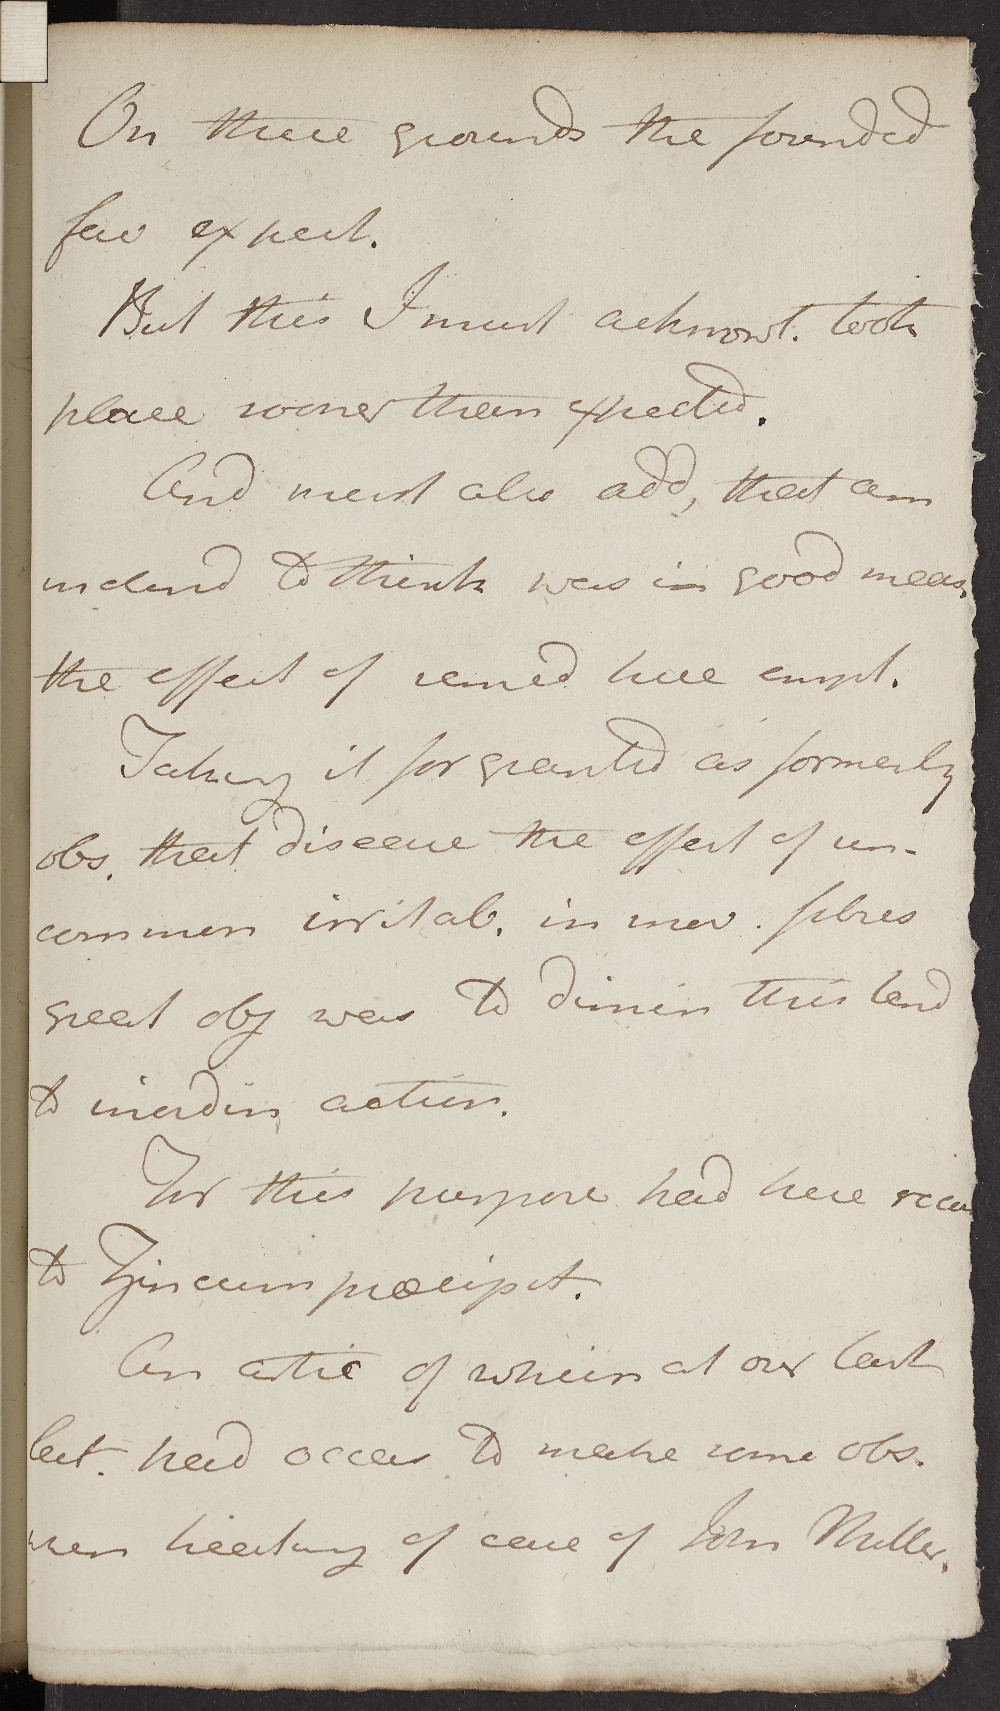 On these grounds the founded
fav expect.
But this I must acknowl. took
place sooner than expected.
And must also add, that am
inclind to think was in good meas.
the effect of remed here empl.
Taking it for granted as formerly
obs. that disease the effect of un-
common irritab. in mov. fibres
great obj was to dimin this tend
to inordin action.
For this purpose had here recou
to Zincum præcipit.
An artic of which at our last
lect. had occas to make some obs.
when treating of case of John Miller.